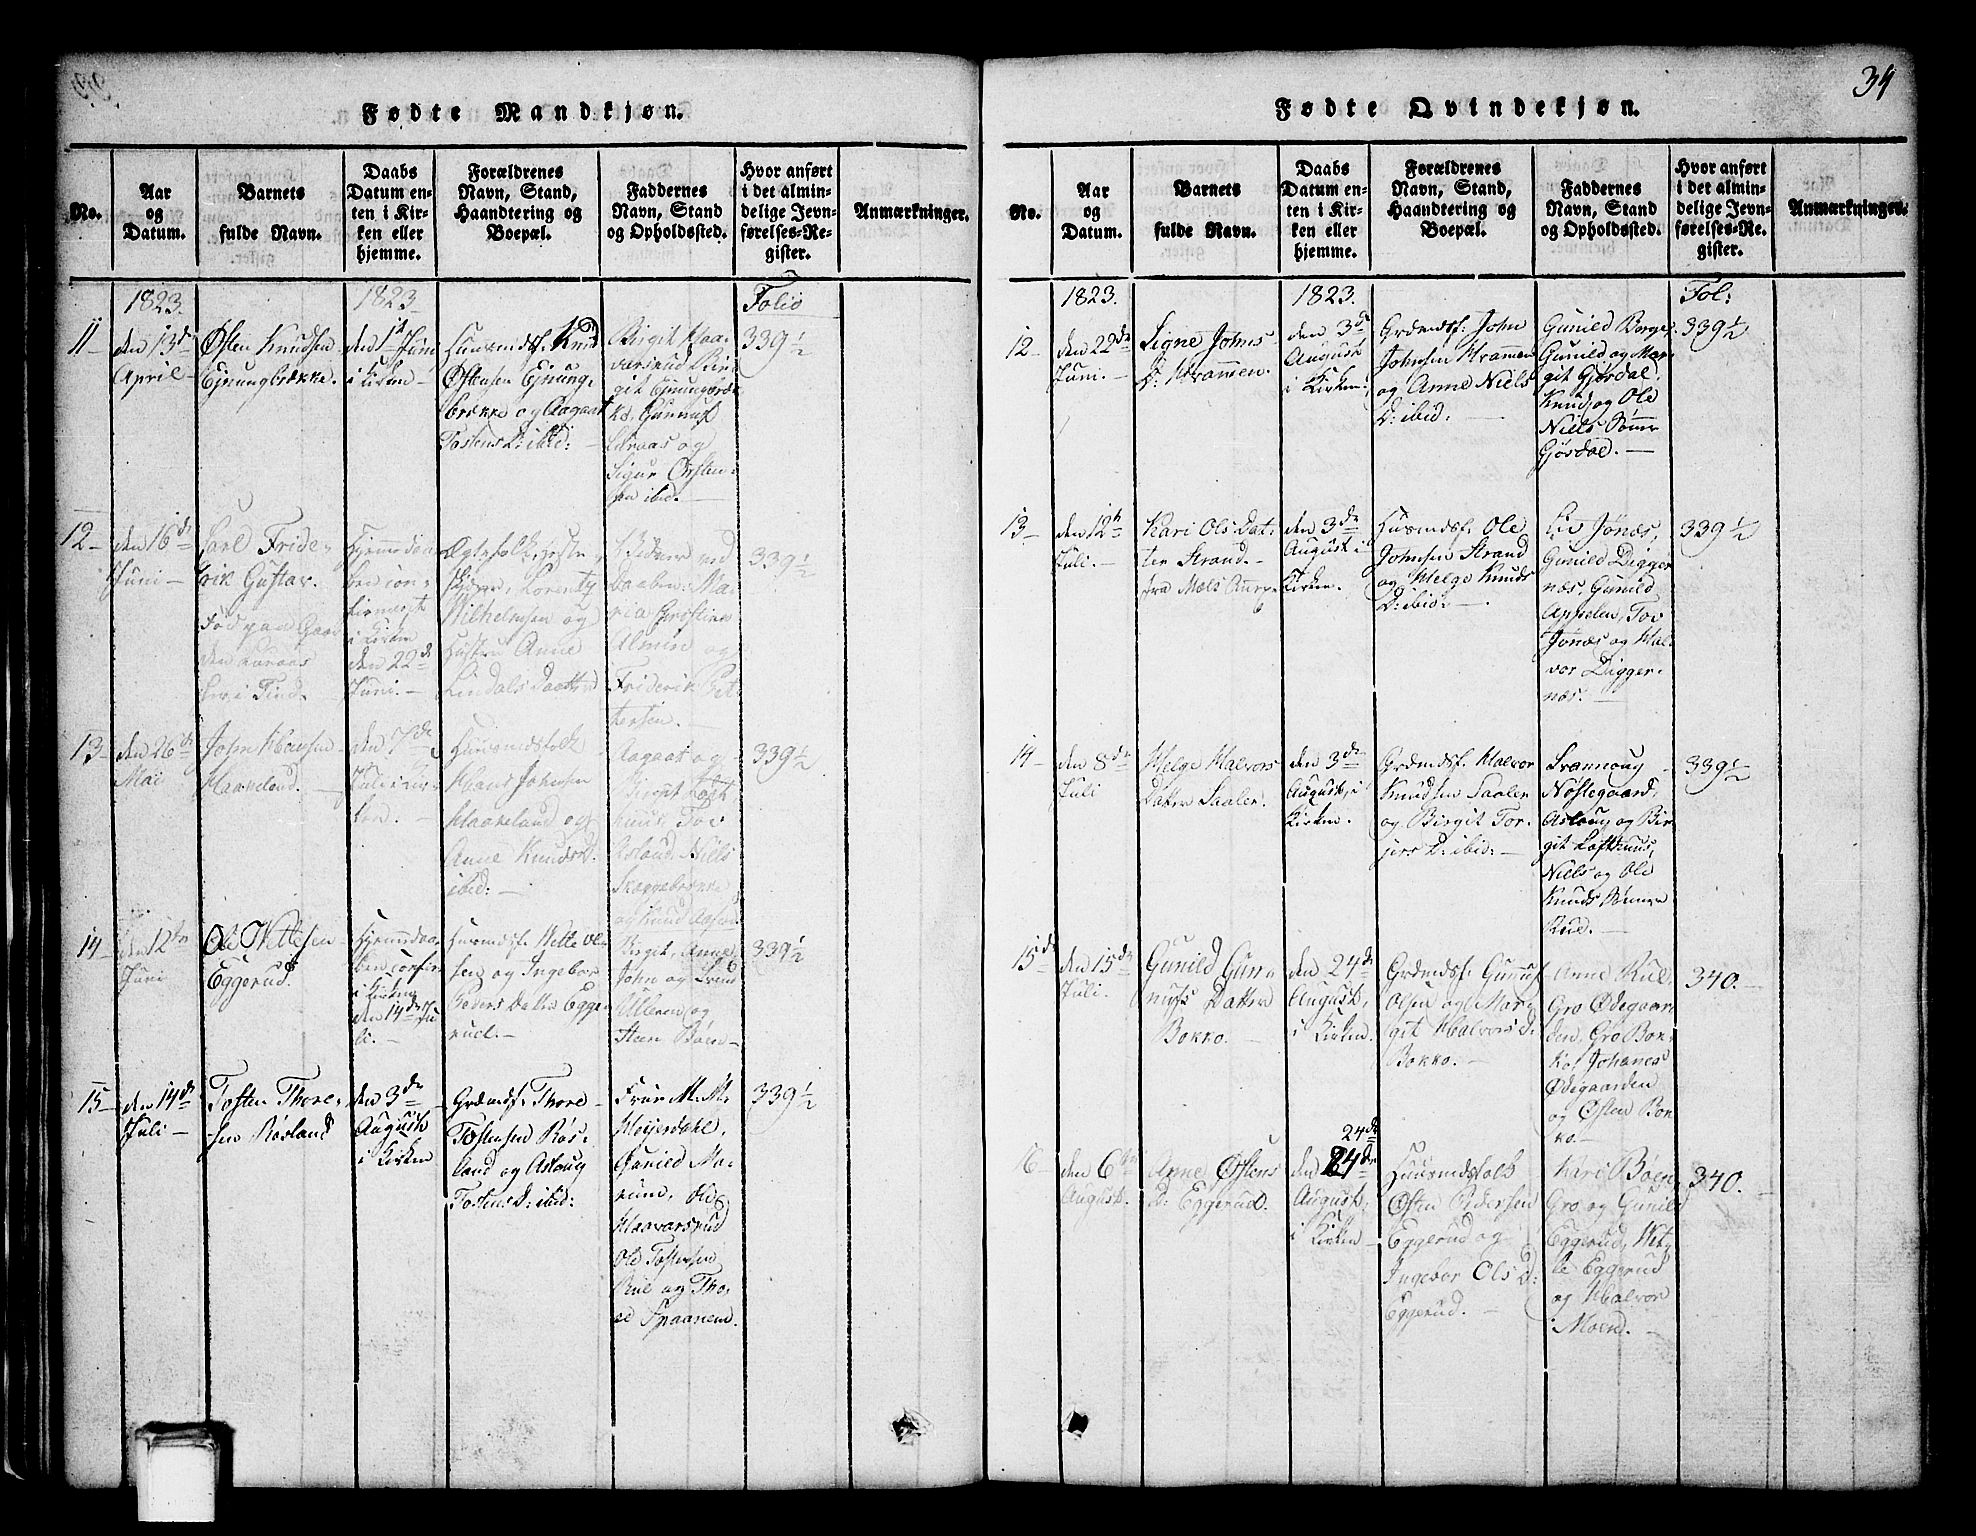 34
Fødte Mandkjøn.
No.
Aar
og
Datum.
Barnets
fulde Navn.
Daabs
Datum en-
ten i Kir-
ken eller
hjemme.
Forældrenes
Navn, Stand,
Haandtering og
Boepæl.
Faddernes
Navn, Stand
og Opholdssted.
Hvor anført
i det almin-
delige Jevn-
førelses-Re-
gister.
Anmærkninger.
1823.
1823
Folio
11
den 13de
April
Østen Knudsen
Ejnungbrække.
i Kirken
Huusmandsf. Knud
Østensen Ejnung-
brække og Aagaat
Tostens D: ibid:
Birgit Haa-
varsrud Bir-
git Ejnungbræk-
og
Sigur Østen-
sen ibid.
339 1/2
12
den 16de
Juni
Carl Fride-
rik Gustav.
Fød paa Gaar-
den
i Tind.
Hjemmedaa-
ben con-
firmeret
i Kirken
den 22de
Juni.
Ægtefolk
Lorentz
Wilhelmsen og
Hustru Anne
Lindals Datter
ved
Daaben: Ma-
ria Christine
Almin og
Friderik Pet-
tersen.
339 1/2
13
den 26de
Mai
John Hansen
Haakeland.
den 7de
Juli i Kir-
ken.
Huusmandsfolk
Hans Johnsen
Haakeland og
Anne Knudsd.
ibid:
Aagaat og
Birgit Loft-
huus Tov
Asland, Niels
Skeggebrække
og Knud
339 1/2
14
den 12te
Juni
Ole Vettesen
Eggerud.
Hjemmedaa-
ben confir.
i Kirken
den 14de Ju-
li.
Huusmandsf. Vette Ol-
sen og Ingebor
Peders Datter Egge-
rud.
Birgit, Anne,
John og
Ulleren og
Steen Bøen
339 1/2
15
den 14de
Juli
Tosten Thore-
sen Røsland
den 3de
August
i Kirken
Grdmdsf. Thore
Tostensen Røs-
land og Aslaug
Tostens D: ibid:
Frue M. M.
Meierdahl,
Gunild Ma-
rum, Ole
Haavarsrud
Ole Tostensen
Rue og Tho-
re Spaanem.
339 1/2
Fødte Qvindekjøn.
No.
Aar
og
Datum.
Barnets
fulde Navn.
Daabs
Datum en-
ten i Kir-
ken eller
hjemme.
Forældrenes
Navn, Stand,
Haandtering og
Boepæl.
Faddernes
Navn, Stand
og Opholdssted.
Hvor anført
i det almin-
delige Jevn-
førelses-Re-
gister.
Anmærkninger.
1823.
1823.
Fol:
12
den 22de
Juni.
Signe Johns
D: Kramen.
den 3de
August
i Kirken
Grdmdsf: John
Johnsen Kramen
og Anne Niels
D: ibid.
Gunild Borge,
Gunild og Mar-
git Gjørdal.
Knud og Ole
Niels Sønner
Gjørdal.
339 1/2
13
den 12te
Juli.
Kari Ols Dat-
ter Strand.
fra Mæls Annex
den 3de
August i
Kirken.
Huusmdsf. Ole
Johnsen Strand
og Helge Knuds
D: ibid:
Liv Jønæs,
Gunild Digger-
næs, Gunild
Appelen, Tov
Jønæs og Hal-
vor Digger-
næs.
339 1/2
14
den 8de
Juli
Helge Halvors
Datter Saaler.
den 3de
August, i
Kirken.
Grdmdsf. Halvor
Knudsen Saaler
og Birgit Tor-
jers D: ibid:
Svannaug
Nøstegaard,
Aslaug og Bir-
git Lofthuus,
Niels og Ole
Knuds Sønner
Rue.
339 1/2
15de
den 15de
Juli.
Gunild Gun-
nufs Datter
Bokko.
den 24de
August,
i Kirken.
Grdmdsf. Gunnuf
Olsen og Mar-
git Halvorsd.
Bokko.
Anne Rue,
Gro Ødegaar-
den, Gro Bok-
ko, Johanes
Ødegaarden
og Østen Bok-
ko.
340.
16
den 6te
August.
Anne Østens
D: Eggerud.
24de
den 24de
August,
i Kirken
Huusmandsfolk
Østen Pedersen
Eggerud og
Ingebor Ols D:
Eggerud.
Kari Bøen,
Gro og Gunild
Eggerud, Vet-
le Eggerud
og Halvor
Moen.
340.